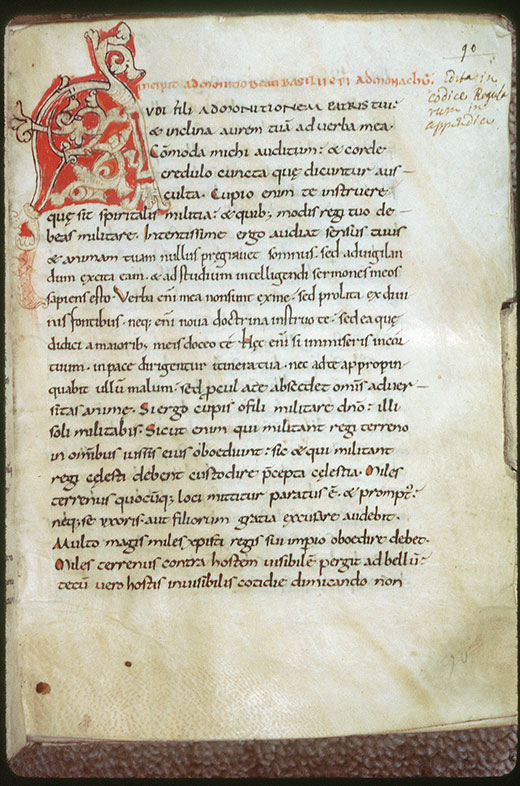 90
Edita in
codice Regula
rum in
appendice
Incipit admonitio beati basilii epi ad monachu.
Audi fili admonitionem patris tui:
& inclina aurem tuā ad uerba mea.
Cōmoda michi auditum: & corde
credulo cuncta quę dicuntur aus-
culta. Cupio enim te instruere
quę sit spiritalis militia: & quib; modis regi tuo de-
beas militare. Intentissime ergo audiat sensus tuus
& animam tuam nullus pregrauet somnus. sed aduigilan
dum excita eam. & ad studium intelligendi sermones meos
sapiens esto. Verba eni mea non sunt ex me. sed prolata ex diui
nis fontibus. neq; eni noua doctrina instruo te. sed ea quę
didici a maiorib; meis doceo te. Hęc eni si immiseris in cor
tuum. in pace dirigentur itinera tua. nec ad te appropin
quabit ullū malum. sed procul a te abscedet omis aduer-
sitas anime. Si ergo cupis o fili militare dno: illi
soli militabis. Sicut enim qui militant regi terreno
in omibus iussis eius oboediunt: sic & qui militant
regi celesti debent custodire p̄cepta cęlestia. Miles
terrenus quocūq; loci mittitur paratus ē. & prompt':
neq; se uxoris. aut filiorum gratia excusare audebit.
Multo magis miles xpisti regis sui impio oboedire debet.
Miles terrenus contra hostem uisibilē pergit ad bellū:
tecū uero hostis inuisibilis cotidie dimicando non